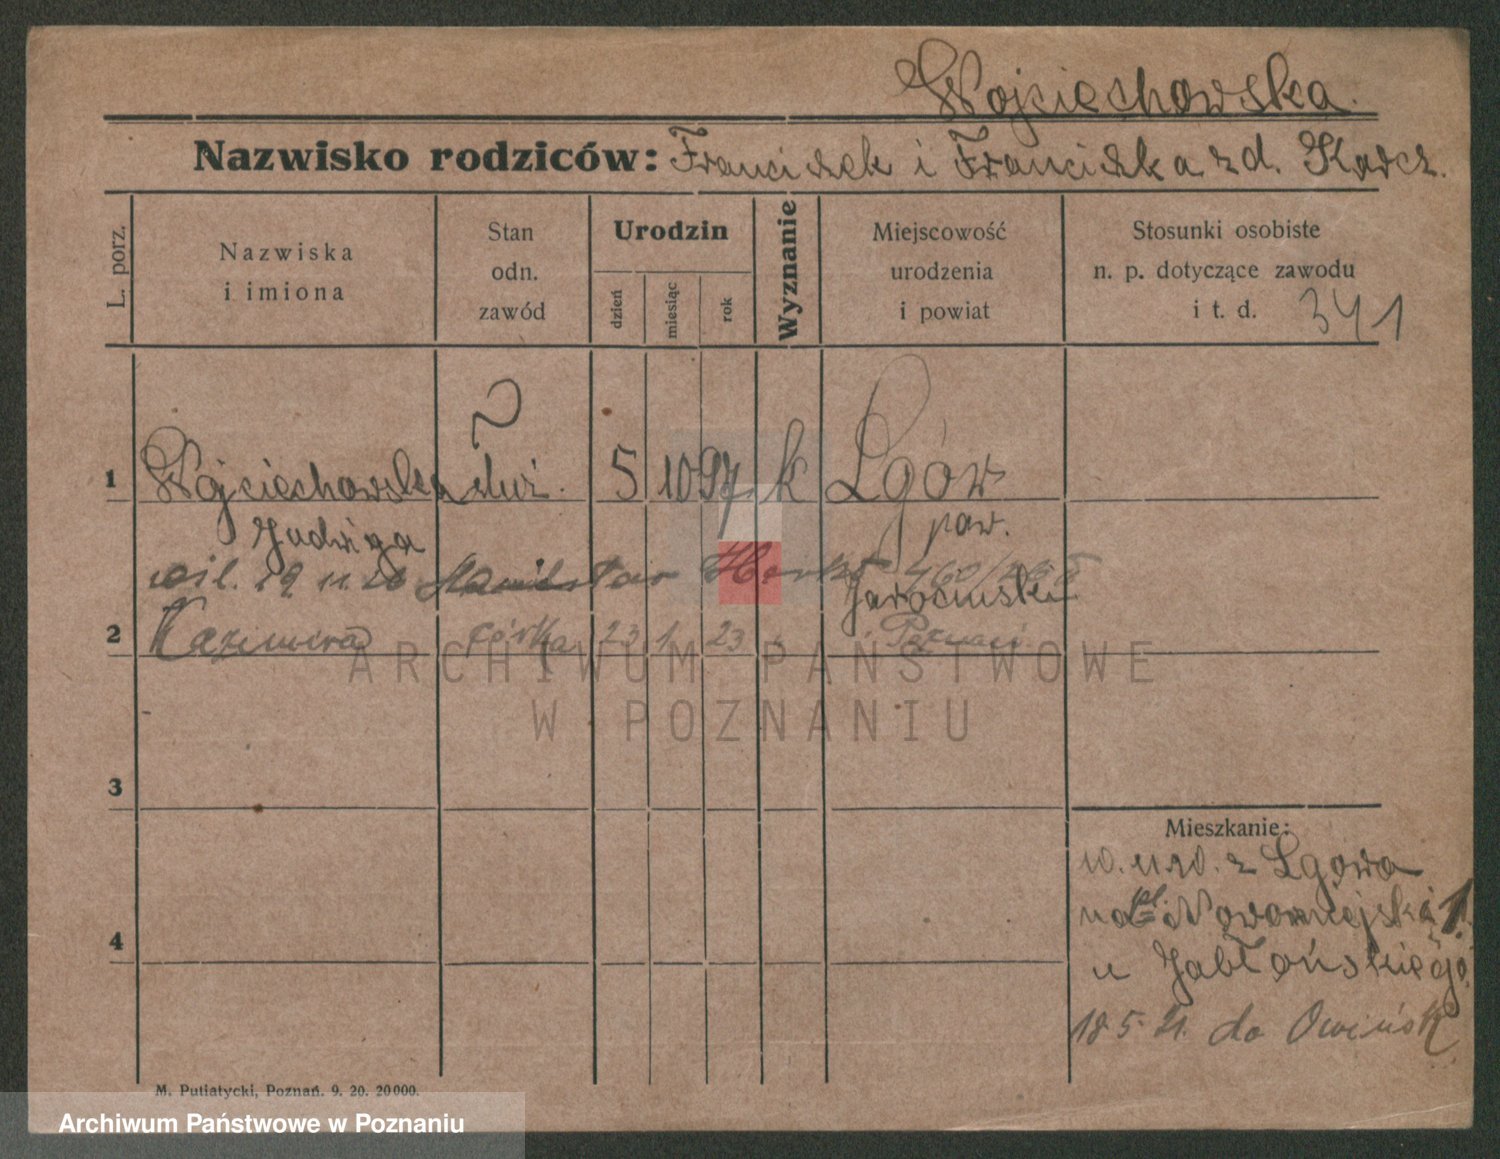 Wojciechowska.
Nazwisko rodziców: Franciszek i Franciszka z d. Karcz.
L. porz.
Nazwiska
i imiona
Stan
odn.
zawód
Urodzin
dzień
miesiąc
rok
Wyznanie
Miejscowość
urodzenia
i powiat
Stosunki osobiste
n. p. dotyczące zawodu
i t. d. 341
1 Wojciechowska służ. 5 10 97 k Lgów
Jadwiga pow.
Jarociński
2 Kazimiera córka 23 1 23 Poznań
ARCHIWUM PAŃSTWOWE
W POZNANIU
3
Mieszkanie:
10.11.20. z Lgowa
na pl. Nowomiejski 1.
4
u Jabłońskiego
18 5 21. do Owińsk
M. Putiatycki, Poznań. 9. 20. 20000.
Archiwum Państwowe w Poznaniu